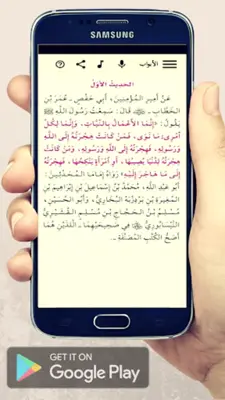 SAMSUNG
الأبواب
الحديث الأول
عَنْ أَمِيرِ الْمُؤْمِنِينَ، أَبِي حَفْصٍ، عُمَرَ بْنِ
الْخَطَّابِ ـ قَالَ: سَمِعْتُ رَسُولَ اللَّهِ ﷺ
يَقُولُ: «إِنَّمَا الْأَعْمَالُ بِالنِّيَّاتِ، وَإِنَّمَا لِكُلِّ
امْرِئٍ مَا نَوَى، فَمَنْ كَانَتْ هِجْرَتُهُ إِلَى اللَّهِ
وَرَسُولِهِ، فَهِجْرَتُهُ إِلَى اللَّهِ وَرَسُولِهِ، وَمَنْ كَانَتْ
هِجْرَتُهُ لِدُنْيَا يُصِيبُهَا، أَوِ امْرَأَةٍ يَنْكِحُهَا، فَهِجْرَتُهُ
إِلَى مَا هَاجَرَ إِلَيْهِ» رَوَاهُ إِمَامَا الْمُحَدِّثِينَ:
أَبُو عَبْدِ اللَّهِ، مُحَمَّدُ بْنُ إِسْمَاعِيلَ بْنِ إِبْرَاهِيمَ بْنِ
الْمُغِيرَةِ بْنِ بَرْدِزْبَهْ الْبُخَارِيُّ، وَأَبُو الْحُسَيْنِ،
مُسْلِمُ بْنُ الْحَجَّاجِ بْنِ مُسْلِمٍ الْقُشَيْرِيُّ
النَّيْسَابُورِيُّ فِي صَحِيحَيْهِمَا، اللَّذَيْنِ هُمَا
أَصَحُّ الْكُتُبِ الْمُصَنَّفَةِ.
GET IT ON
Google Play